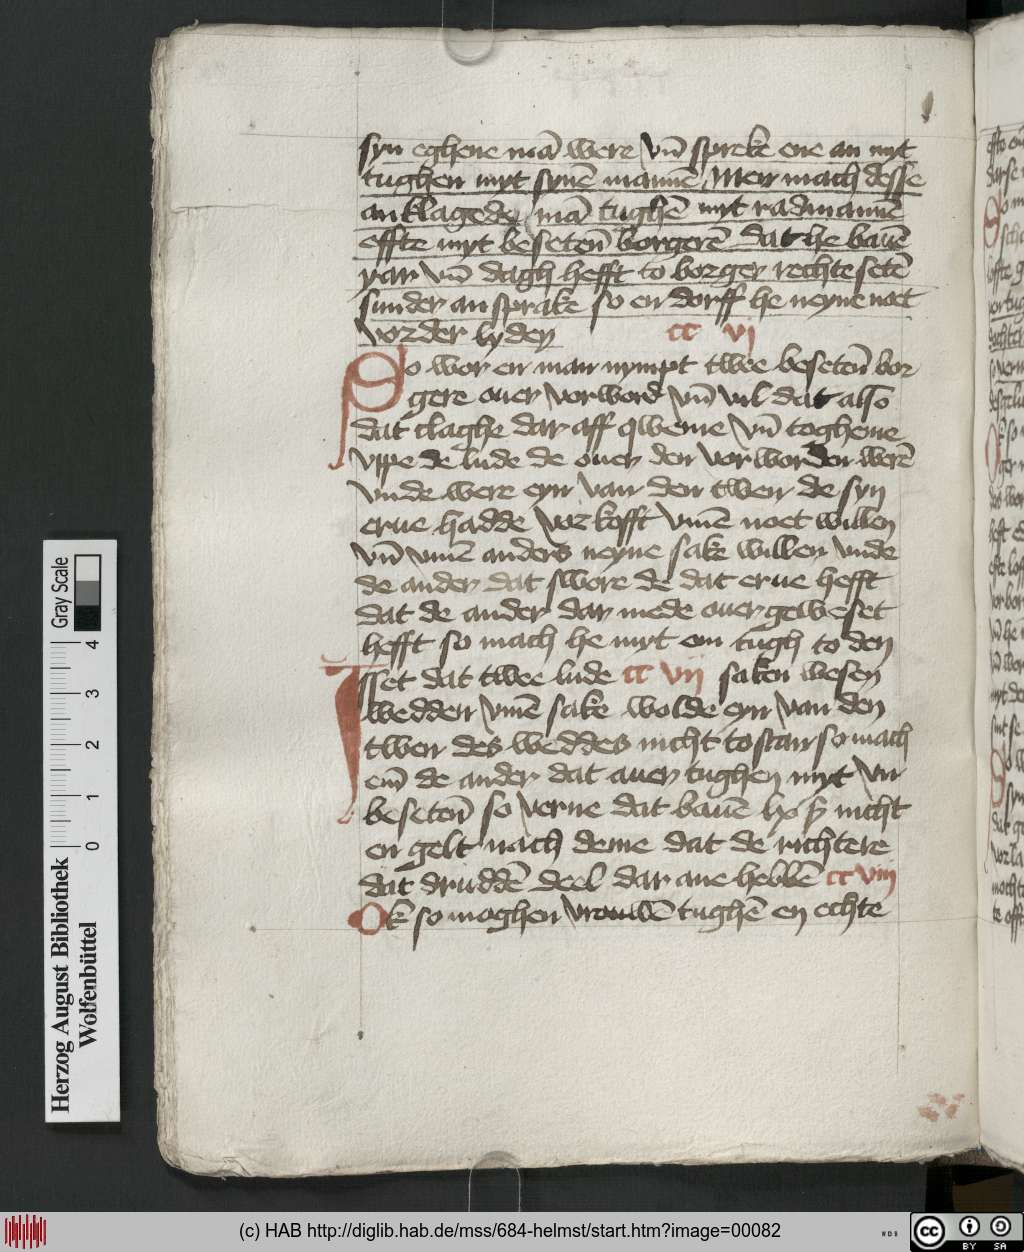 syn eghene mā were vn̄ spreke ene an myt
tughen myt synē mannē Mer mach desse
anklagede mā tughē myt radmannē
effte myt besetēn borgerē dat he bauē
yar vn̄ dagh hefft to borger rechte setē
sunder ansprake so en dorff he neyne noet
vorder lyden cc vi
So wor en man nympt twee besetēn bor
gere ouer vorword vn̄ vil dat also
dat claghe dar aff qweme vn̄ togheme
vppe de lude de ouer den vorworden werē
vnde were eyn van den twen de syn
erue hadde vorkofft vmē noet willen
vn̄ vmē anders neyne sake willen vnde
de ander dat swore de dat erue hefft
dat de ander dar mede ouer geweset
hefft so mach he myt em tugh to den
Isset dat twee lude cc vii saken wesen
wedden vmē sake wolde eyn van den
twen des weddes nicht tostan so mach
em̄ de ander dat auer tughen myt vn
besetēn so verne dat bauē hō p̄ nicht
en gelt nach deme dat de richtere
dat druddē deel dar ane hebbē cc viii
Ok so moghen vrouwē tughē en echte
Herzog August Bibliothek
Wolfenbüttel
0 1 2 3 4
Gray Scale
(c) HAB http://diglib.hab.de/mss/684-helmst/start.htm?image=00082
WDB
cc BY SA